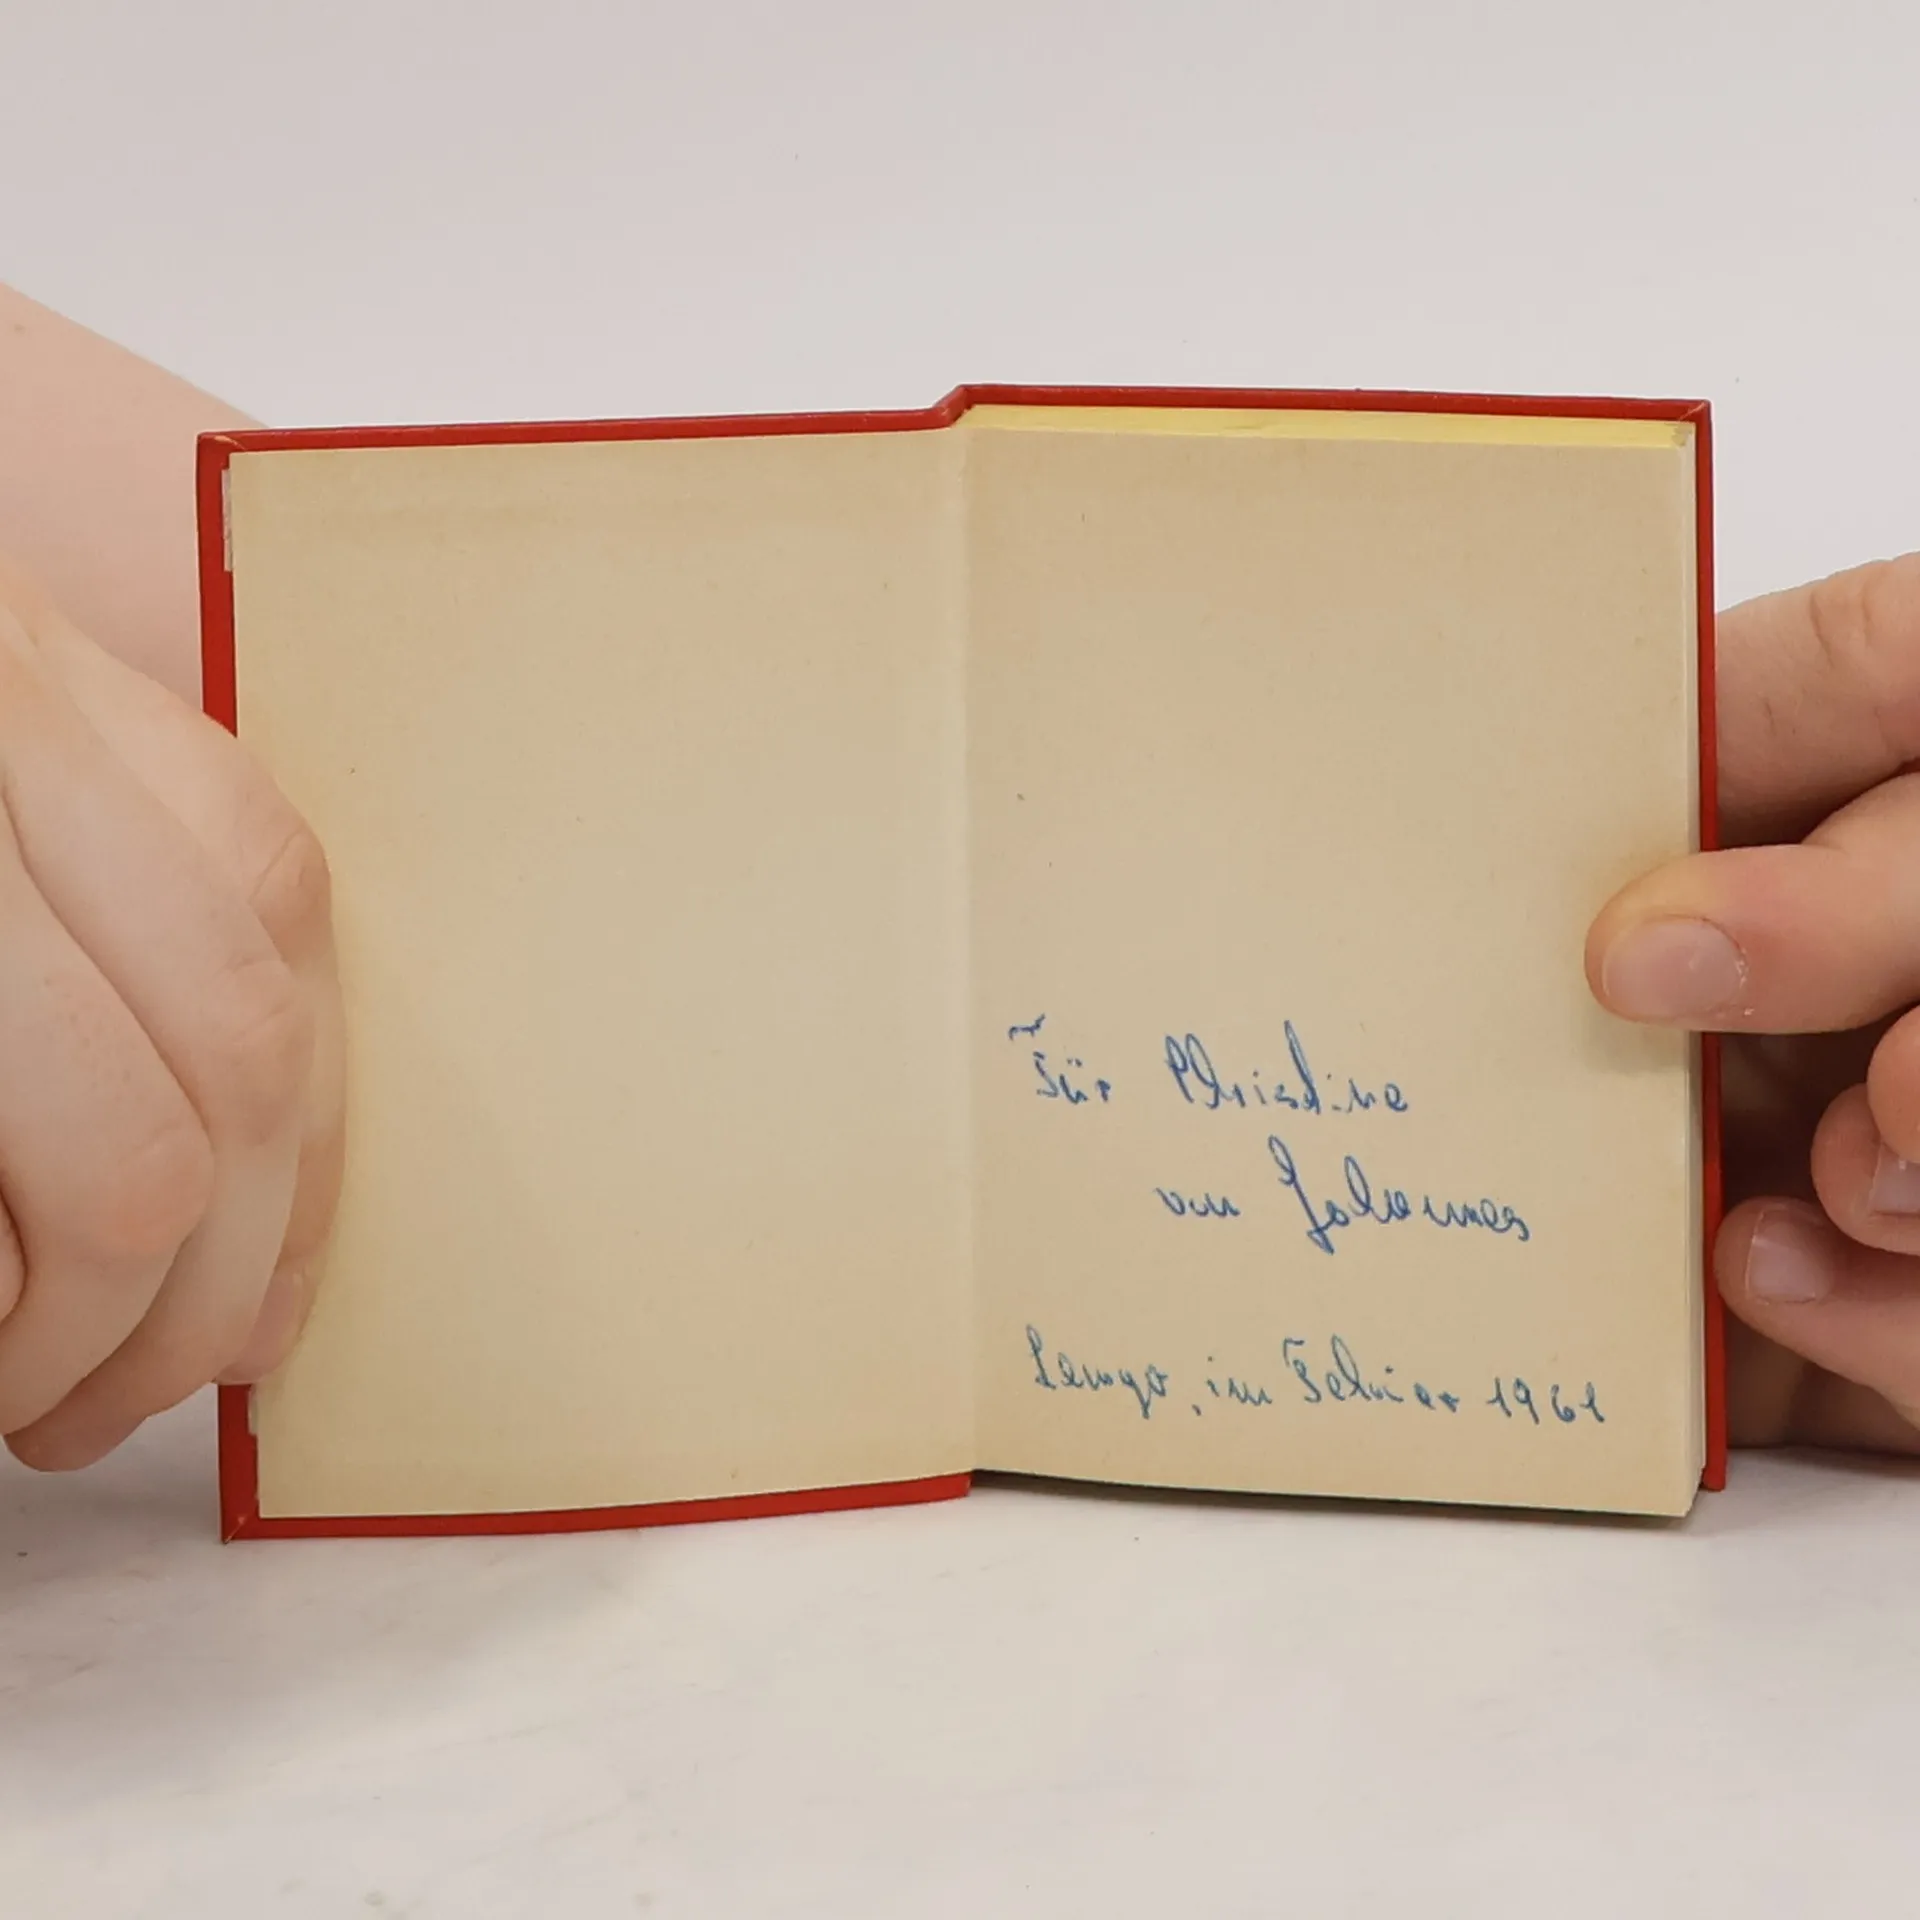 Für Christine
von Johannes
Lemgo, im Februar 1961